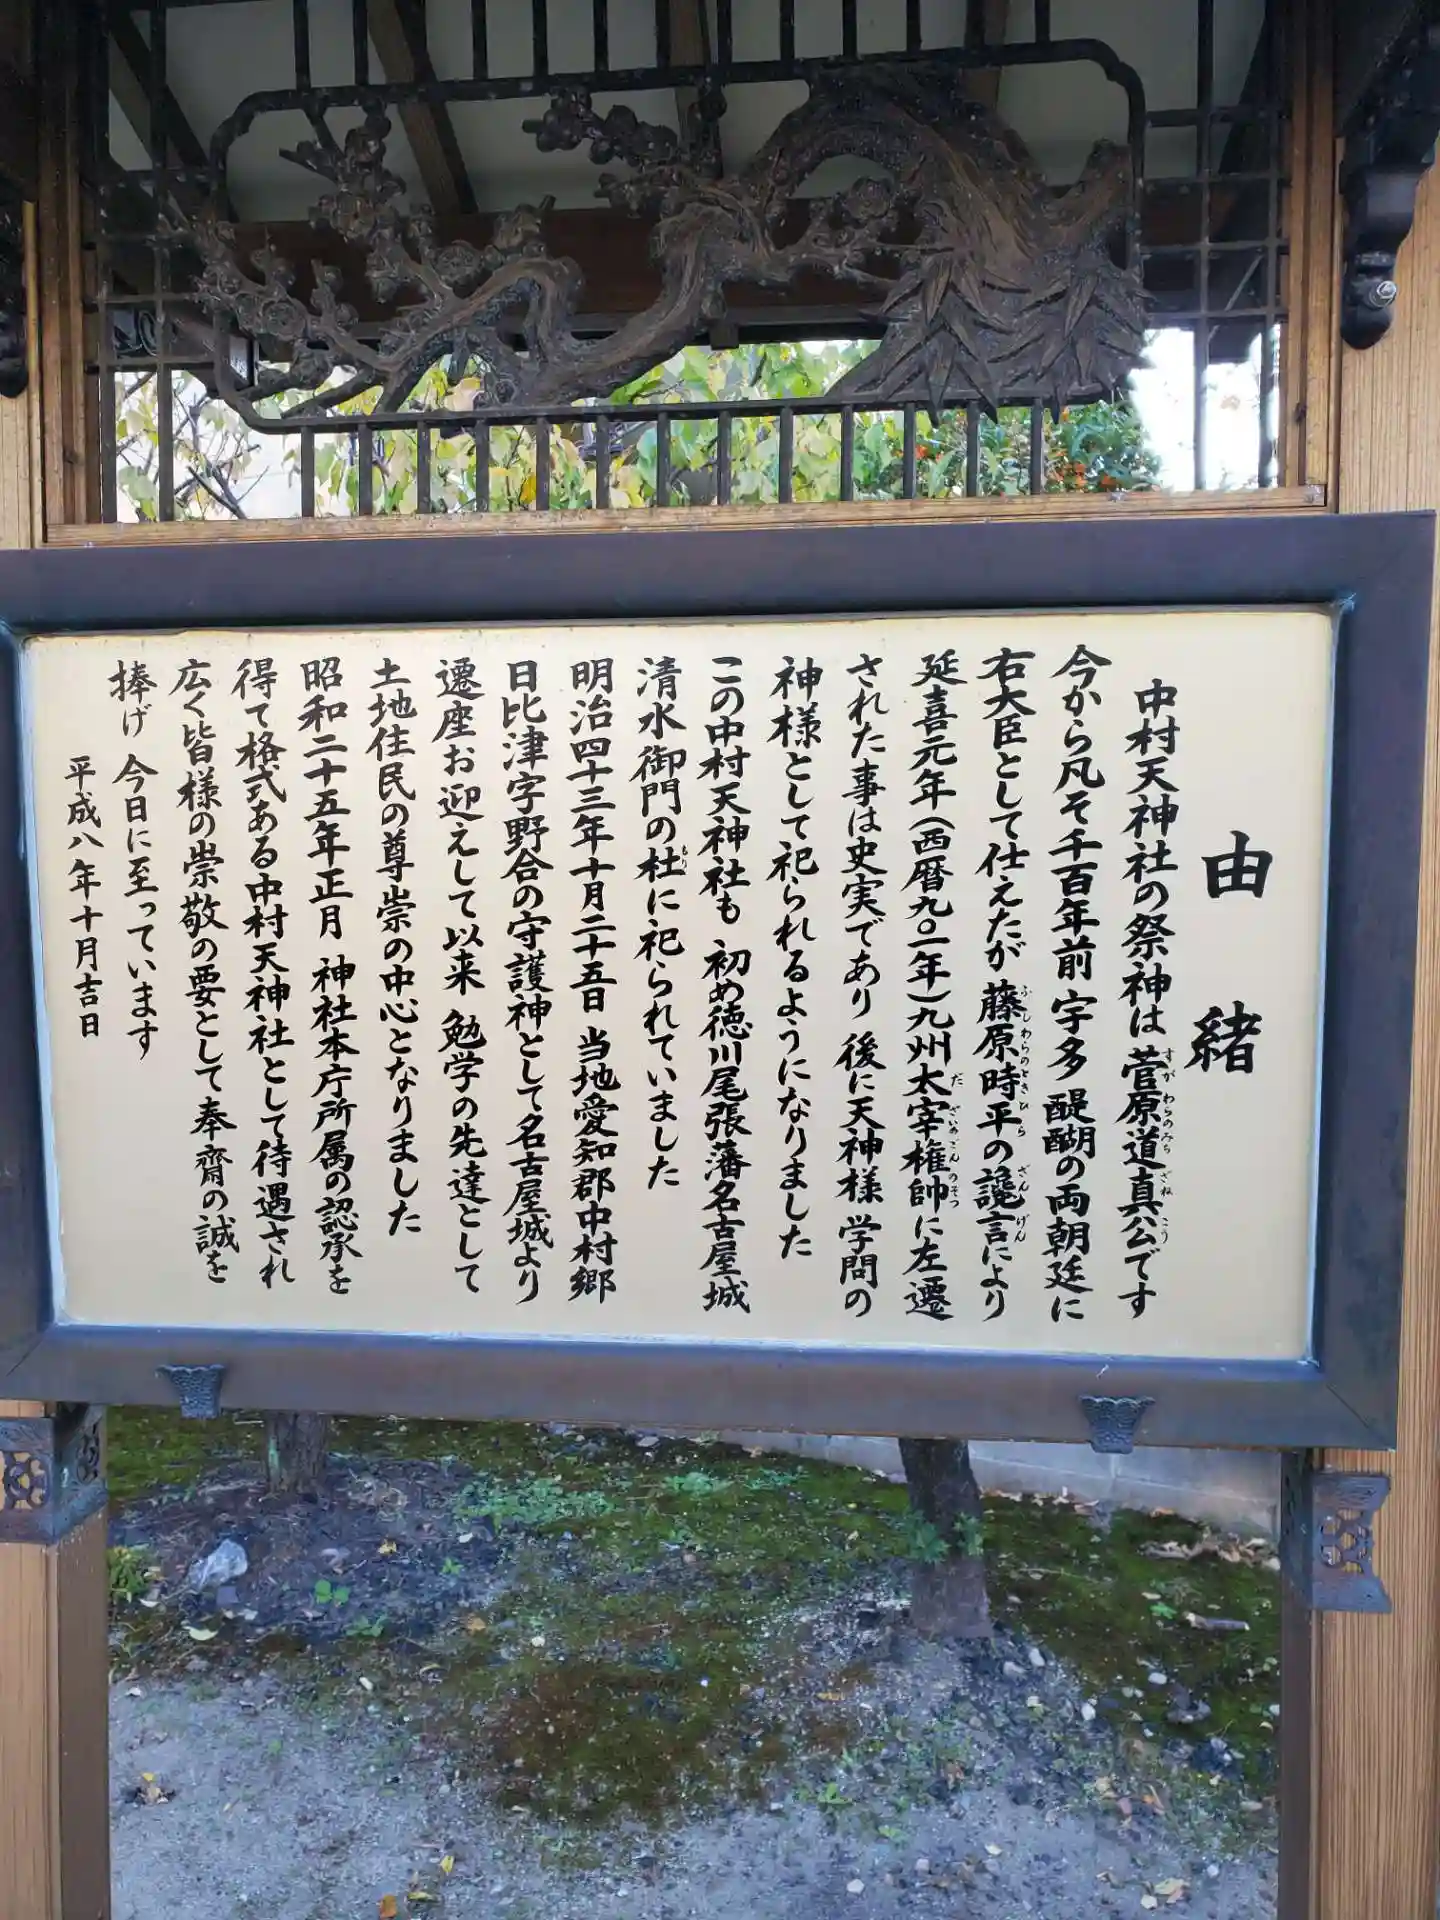 由緒
中村天神社の祭神は 菅原道真公です
今から凡そ千百年前 宇多 醍醐の両朝廷に
右大臣として仕えたが 藤原時平の讒言により
延喜元年(西暦九〇一年)九州太宰権帥に左遷
された事は史実であり 後に天神様 学問の
神様として祀られるようになりました
この中村天神社も 初め徳川尾張藩名古屋城
清水御門の杜に祀られていました
明治四十三年十月二十五日 当地愛知郡中村郷
日比津字野合の守護神として名古屋城より
遷座お迎えして以来 勉学の先達として
土地住民の尊崇の中心となりました
昭和二十五年正月 神社本庁所属の認承を
得て格式ある中村天神社として待遇され
広く皆様の崇敬の要として奉齋の誠を
捧げ 今日に至っています
平成八年十月吉日